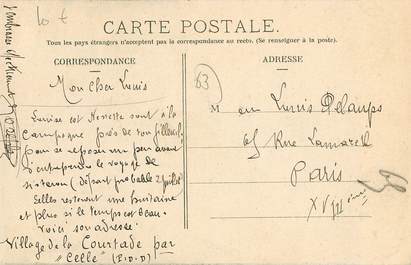 10 t
CARTE POSTALE.
Tous les pays étrangers n'acceptent pas la correspondance au recto. (Se renseigner à la poste).
CORRESPONDANCE
Mon Cher Louis
Louise est Nenette sont à la
Campagne près de son filleul
pour se reposer un peu avant
d'entreprendre le voyage de
(départ probable 2 juillet
Elles resteront une huitaine
et plus si le temps est beau.
Voici son adresse:
Village de la Courtade par
"Celle" (P.D.D)
ADRESSE
63
M on Louis Delamps
65 Rue Lamarck
Paris
XVIII ème